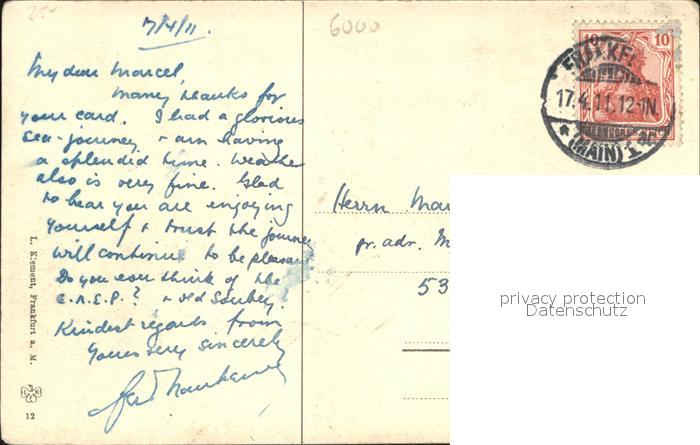 25-
7/4/11.
6000
My dear Marcel,
Many thanks for
your card. I had a glorious
sea-journey & am having
a splendid time. Weather
also is very fine. Glad
to hear you are enjoying
yourself & trust the journey
will continue to be pleasant
Do you ever think of the
& old
Kindest regards from
Yours very sincerely
10 10
17.4.11.12-1N.
* (MAIN) 1
Herrn Mar
pr. adr. M
53
privacy protection
Datenschutz
L. Klement, Frankfurt a. M.
12